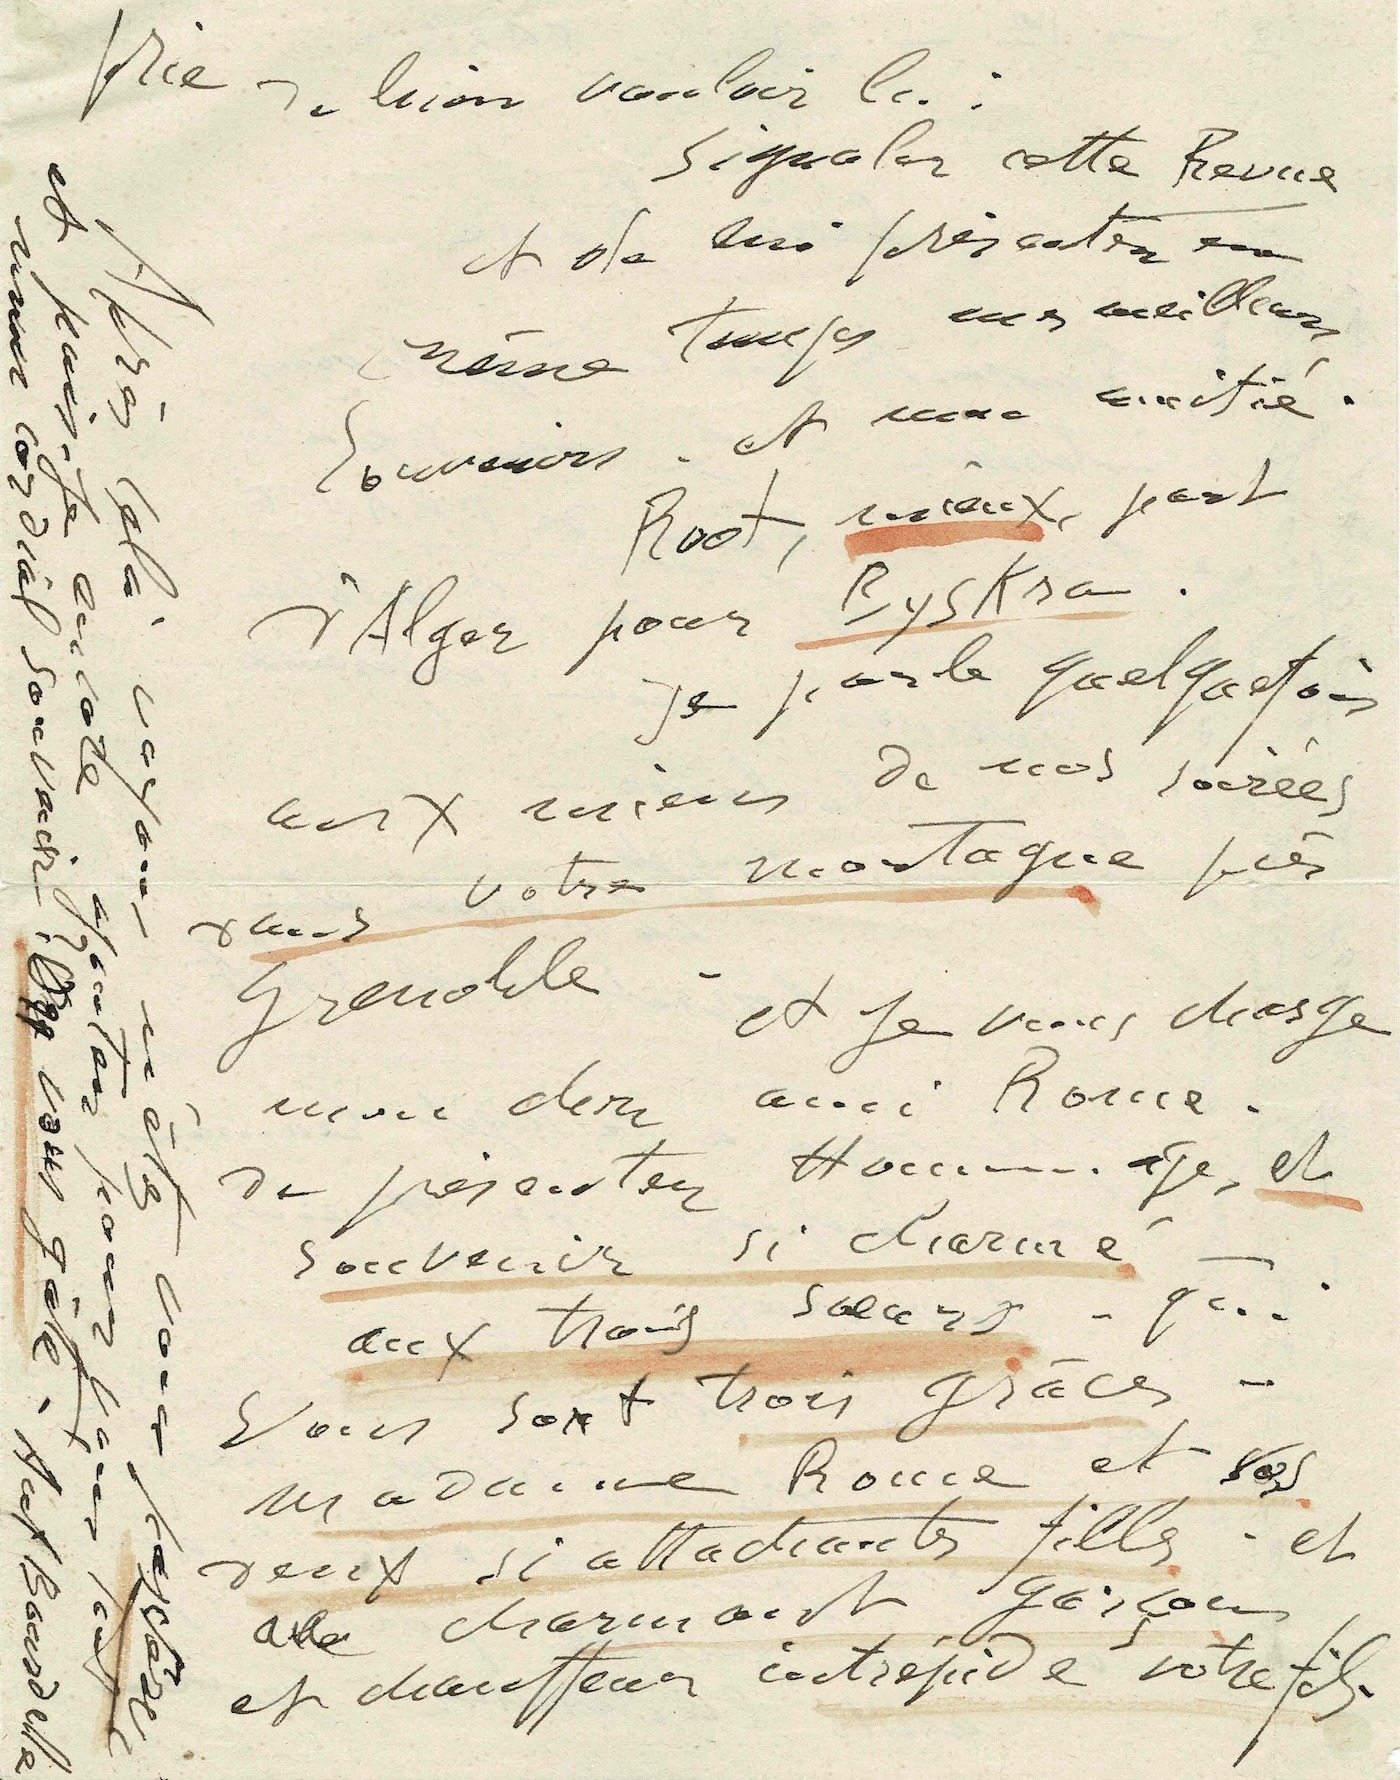 prie de bien vouloir lui
signaler cette Revue
et de lui présenter en
même temps mes meilleurs
souvenirs - et mon amitié.
Root, mieux, part
d'Alger pour Byskra.
Je parle quelquefois
aux miens de nos soirées
dans votre montagne près
Grenoble - et je vous charge
mon cher ami Rome.
de présenter Hommage, et
souvenir si charmé -
aux trois soeurs - qui
vous sont trois grâces -
madame Rome et vos
deux si attachantes filles - et
au charmant garçon,
et chauffeur intrépide votre fils.
Après cela, voyons, n'êtes vous
et puis-je encore ajouter pour vous tout
mon cordial souvenir. vous gâte. Ant Bourdelle